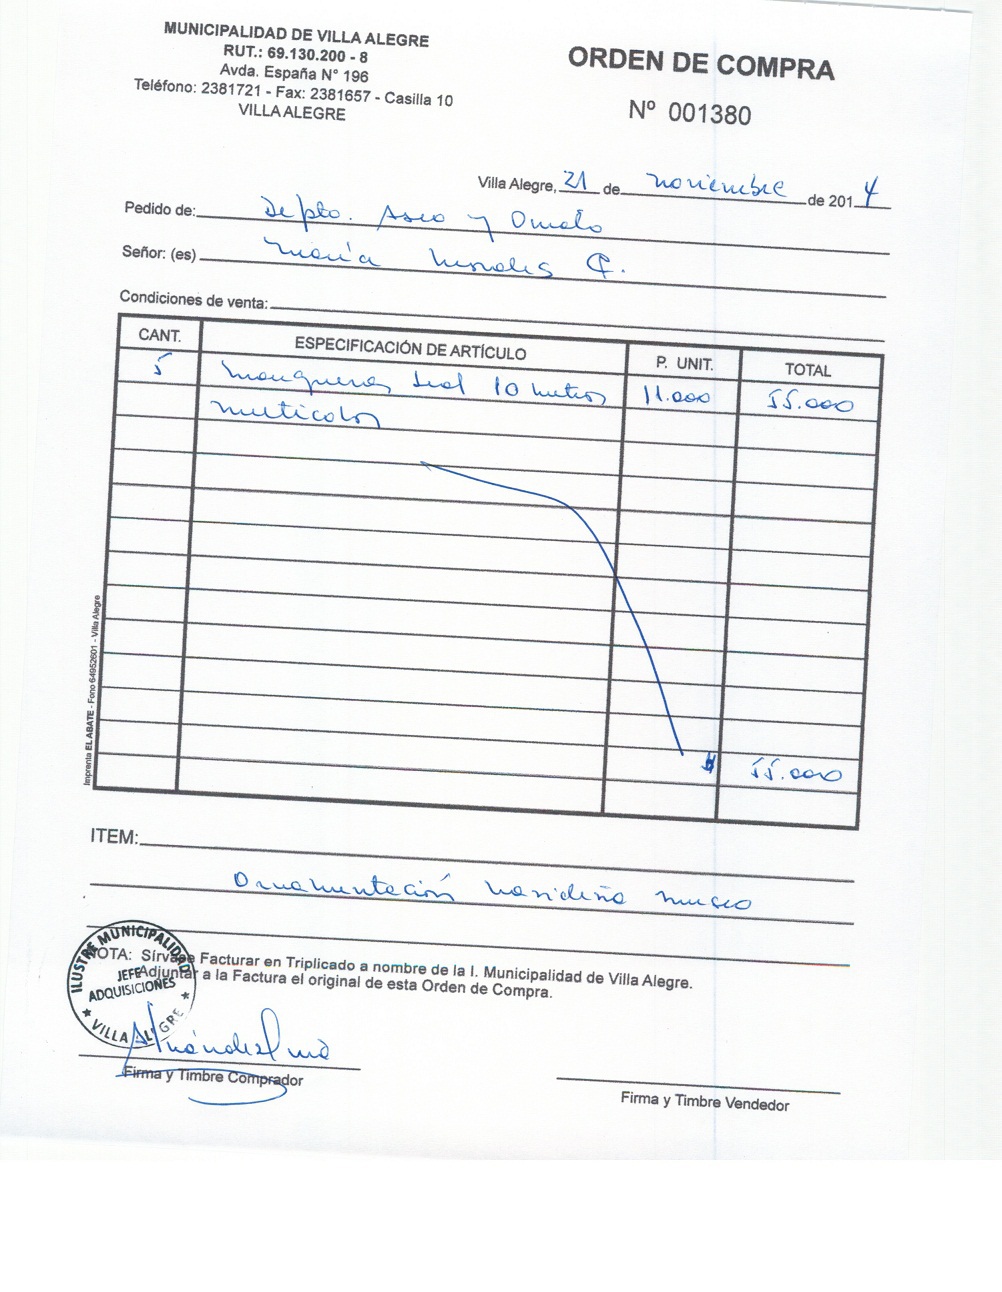 MUNICIPALIDAD DE VILLA ALEGRE
RUT.: 69.130.200 - 8
Avda. España N° 196
Teléfono: 2381721 - Fax: 2381657 - Casilla 10
VILLA ALEGRE
ORDEN DE COMPRA
Nº 001380
Villa Alegre, 21 de noviembre de 2014
Pedido de: Depto. Aseo y Ornato
Señor: (es) María Morales C.
Condiciones de venta:
CANT. ESPECIFICACIÓN DE ARTÍCULO P. UNIT. TOTAL
5 Mangueras Led 10 metros 11.000 55.000
multicolor
$ 55.000
Imprenta EL ABATE - Fono 64952601 - Villa Alegre
ITEM:
Ornamentación navideña museo
NOTA: Sirvase Facturar en Triplicado a nombre de la I. Municipalidad de Villa Alegre.
Adjuntar a la Factura el original de esta Orden de Compra.
ILUSTRE MUNICIPALIDAD
JEFE
ADQUISICIONES
★ VILLA ALEGRE ★
Firma y Timbre Comprador
Firma y Timbre Vendedor